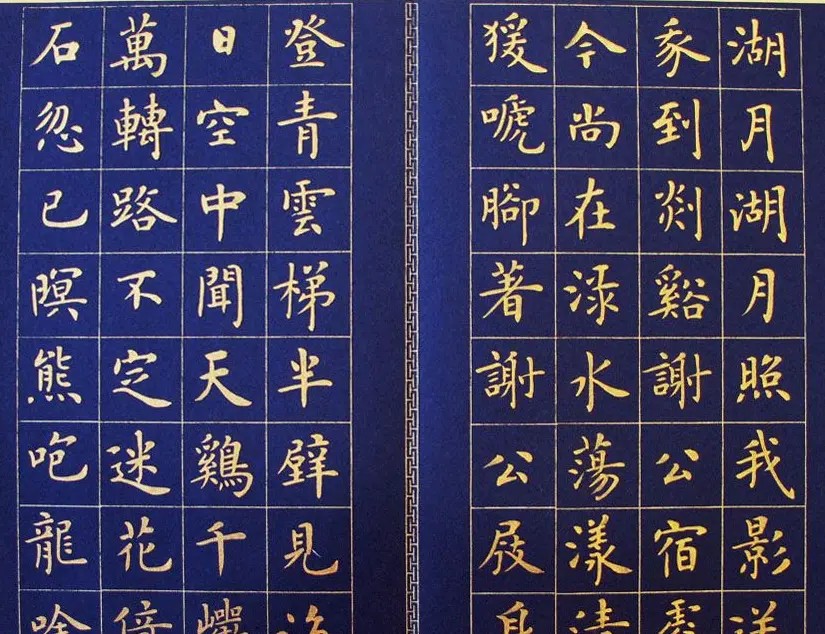 湖月湖月照我影送
豕到剡谿謝公宿處
今尚在渌水蕩漾清
猨嗁腳著謝公屐身
登青雲梯半壁見海
日空中聞天鷄千巖
萬轉路不定迷花倚
石忽已暝熊咆龍唫